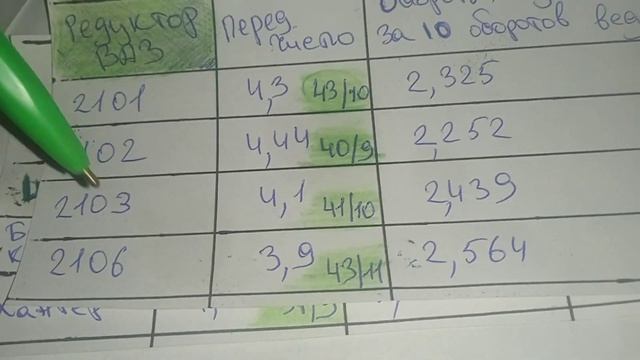 Редуктор ВАЗ
Перед. Число
за 10 оборотов вед
2101 4,3 43/10 2,325
02 4,44 40/9 2,252
2103 4,1 41/10 2,439
2106 3,9 43/11 2,564